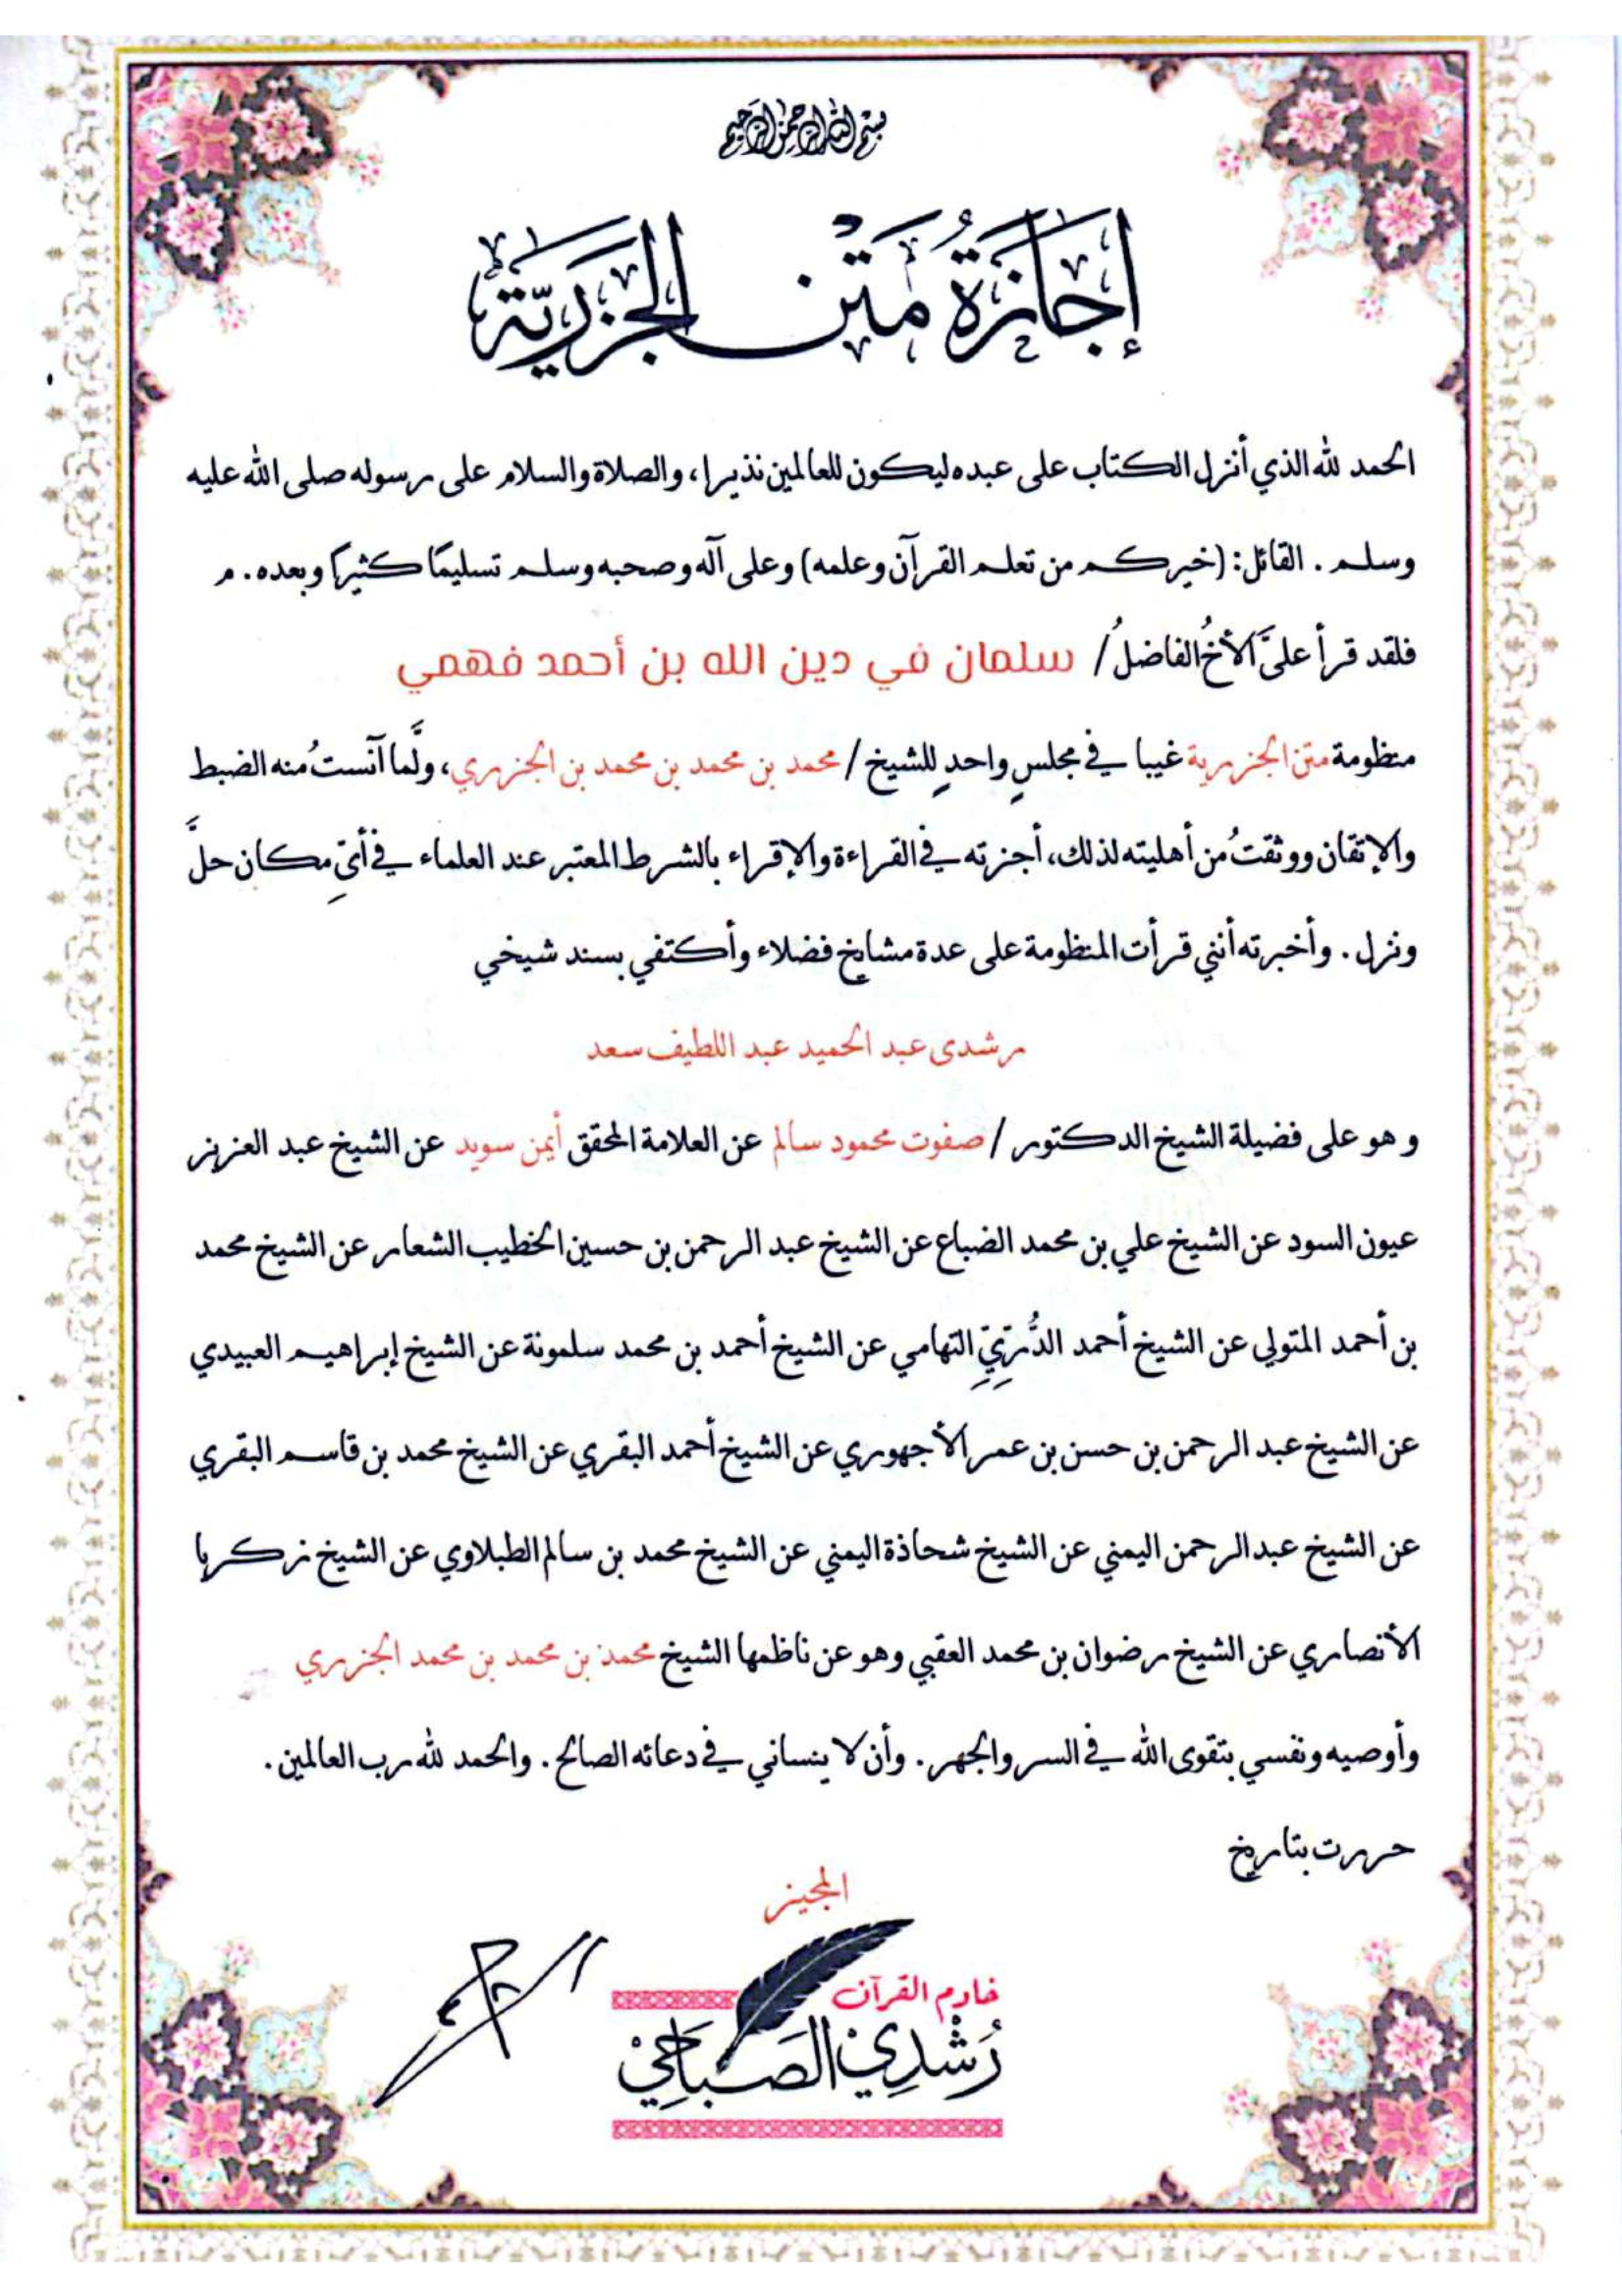 بسم الله الرحمن الرحيم
إِجَازَةُ مَتْنِ الجَزَرِيَّةِ
الحمد لله الذي أنزل الكتاب على عبده ليكون للعالمين نذيرا، والصلاة والسلام على رسوله صلى الله عليه
وسلم. القائل: (خيركم من تعلم القرآن وعلمه) وعلى آله وصحبه وسلم تسليمًا كثيرًا وبعده. م
فلقد قرأ عليَّ الأخُ الفاضلُ/ سلمان في دين الله بن أحمد فهمي
منظومة متن الجزرية غيبا في مجلسٍ واحدٍ للشيخ / محمد بن محمد بن محمد بن الجزري، ولَّما آنستُ منه الضبط
والإتقان ووثقتُ من أهليته لذلك، أجزته في القراءة والإقراء بالشرط المعتبر عند العلماء في أيِّ مكان حلَّ
ونزل. وأخبرته أنني قرأت المنظومة على عدة مشايخ فضلاء وأكتفي بسند شيخي
رشدى عبد الحميد عبد اللطيف سعد
و هو على فضيلة الشيخ الدكتور / صفوت محمود سالم عن العلامة المحقق أيمن سويد عن الشيخ عبد العزيز
عيون السود عن الشيخ علي بن محمد الضباع عن الشيخ عبد الرحمن بن حسين الخطيب الشعار عن الشيخ محمد
بن أحمد المتولي عن الشيخ أحمد الدُّرِّيِّ التهامي عن الشيخ أحمد بن محمد سلمونة عن الشيخ إبراهيم العبيدي
عن الشيخ عبد الرحمن بن حسن بن عمر الأجهوري عن الشيخ أحمد البقري عن الشيخ محمد بن قاسم البقري
عن الشيخ عبد الرحمن اليمني عن الشيخ شحاذة اليمني عن الشيخ محمد بن سالم الطبلاوي عن الشيخ زكريا
الأنصاري عن الشيخ رضوان بن محمد العقبي وهو عن ناظمها الشيخ محمد بن محمد بن محمد الجزري
وأوصيه ونفسي بتقوى الله في السر والجهر. وأن لا ينساني في دعائه الصالح. والحمد لله رب العالمين.
حررت بتاريخ
المجيز
خادم القرآن
رُشْدِي الصَّبَاحِيْ